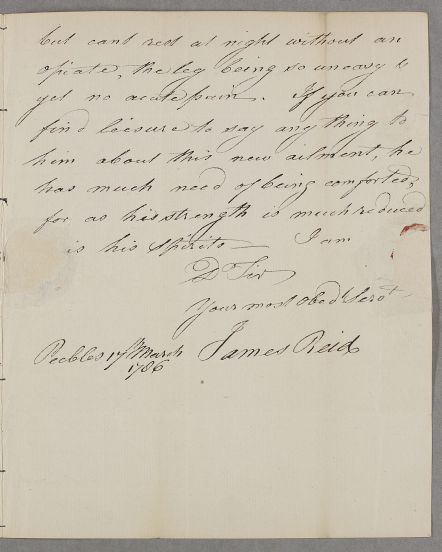 but cant rest at night without an
opiate, the leg being so uneasy &
yet no acute pain. If you can
find leisure to say any thing to
him about this new ailment, he
has much need of being comforted,
for as his strength is much reduced
is his spirits — I am
D Sir
Your most obedt. Servt
James Reid
Peebles 17th March
1786